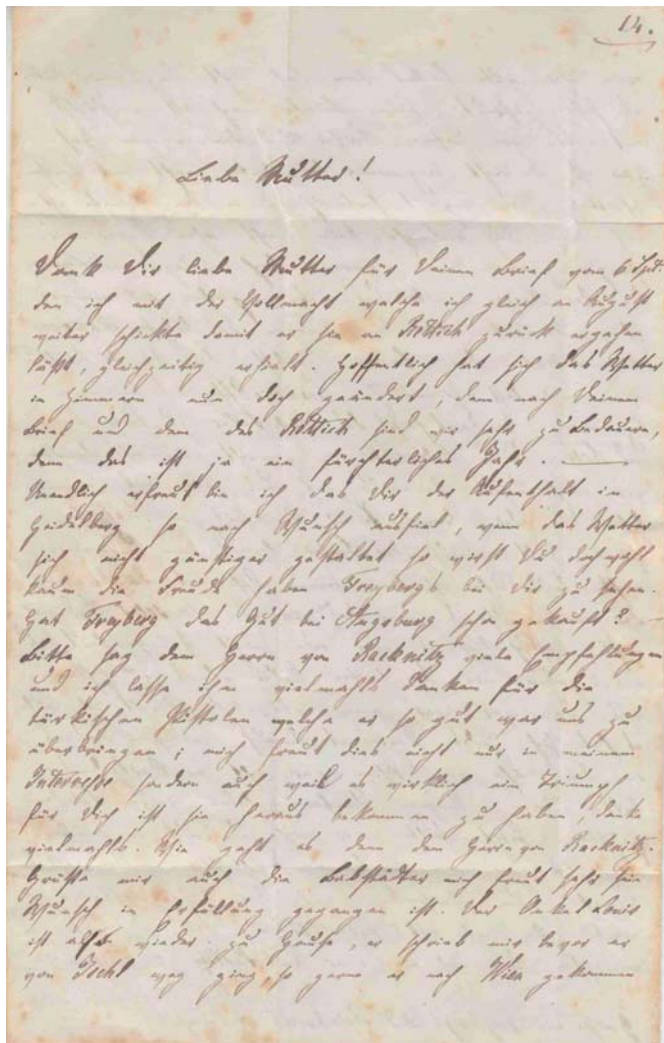 14.
Liebe Mutter!
Dank Dir liebe Mutter für Deinen Brief vom 6 Sept.
den ich mit der Vollmacht welche ich gleich an August
weiter schickte damit er sie an Rottich zurück ergehen
läßt, gleichzeitig erhielt. Hoffentlich hat sich das Wetter
in Zimmern nun doch geändert, denn nach Deinem
Brief und dem des Rottich sind wir sehr zu bedauern,
denn das ist ja ein fürchterliches Jahr. —
Unendlich erfreut bin ich das Dir der Aufenthalt in
Heidelberg so nach Wunsch ausfiel, wenn das Wetter
sich nicht günstiger gestaltet so wirst Du doch wohl
kaum die Freude haben Freybergs bei Dir zu sehen.
Hat Freyberg das Gut bei Augsburg schon gekauft? —
Bitte sag dem Herrn von Racknitz viele Empfehlungen
und ich lasse ihm vielmahls danken für die
türkischen Pistolen welche er so gut war uns zu
überbringen; mich freut dies nicht nur in meinem
Interesse sondern auch weil es wirklich ein Triumph
für Dich ist sie heraus bekommen zu haben, danke
vielmahls. Wie geht es denn dem Herrn von Racknitz.
Grüsse mir auch die Babstädter mich freut sehr ihr
Wunsch in Erfüllung gegangen ist. Der Onkel Louis
ist also wieder zu Hause, er schrieb mir bevor er
von Ischl weg ging, so gerne er nach Wien gekommen